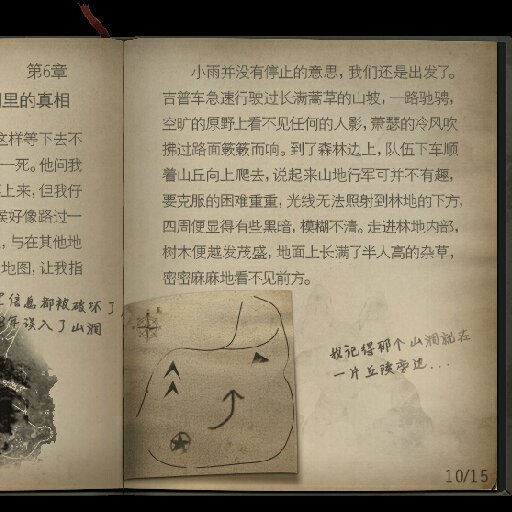 第6章
里的真相
这样等下去不
一死。他问我
上来，但我仔
候好像路过一
，与在其他地
地图，让我指
信息都被破坏了
年误入了山洞
小雨并没有停止的意思，我们还是出发了。
吉普车急速行驶过长满蒿草的山坡，一路驰骋，
空旷的原野上看不见任何的人影，萧瑟的冷风吹
拂过路面簌簌而响。到了森林边上，队伍下车顺
着山丘向上爬去，说起来山地行军可并不有趣，
要克服的困难重重，光线无法照射到林地的下方，
四周便显得有些黑暗，模糊不清。走进林地内部，
树木便越发茂盛，地面上长满了半人高的杂草，
密密麻麻地看不见前方。
我记得那个山洞就在
一片丘陵旁边...
10/15